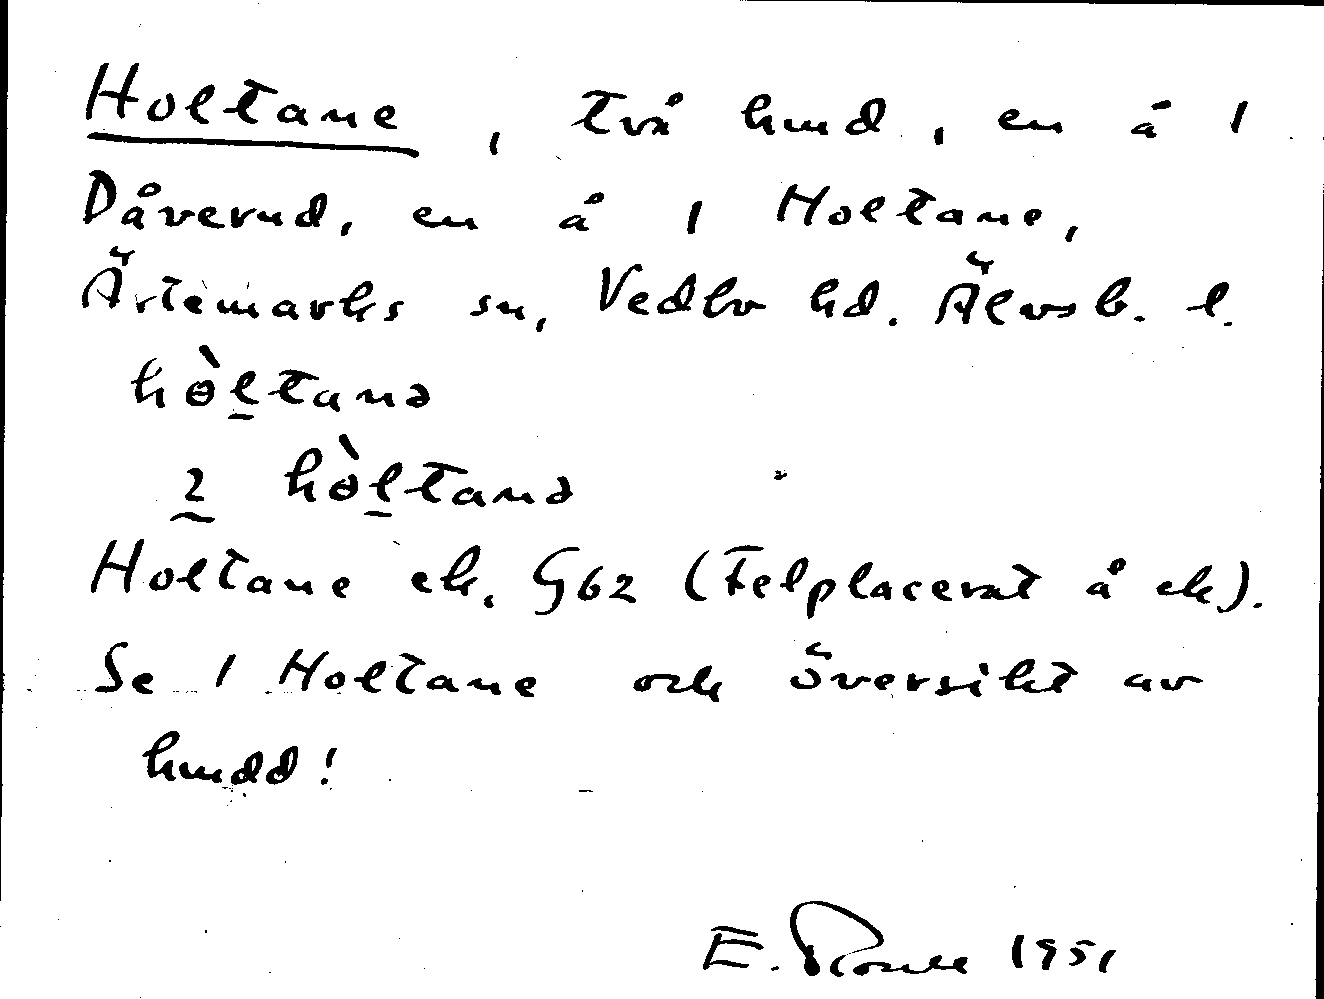 Holtane, två hmd, en å 1
Dåverud, en å 1 Holtane,
Ärtemarks sn, Vedbo hd. Älvsb. l.
hòltanə
2 hòltanə
Holtane ek. G62 (Felplacerat å ek).
Se 1 Holtane och översikt av
hmdd!
E. 1951